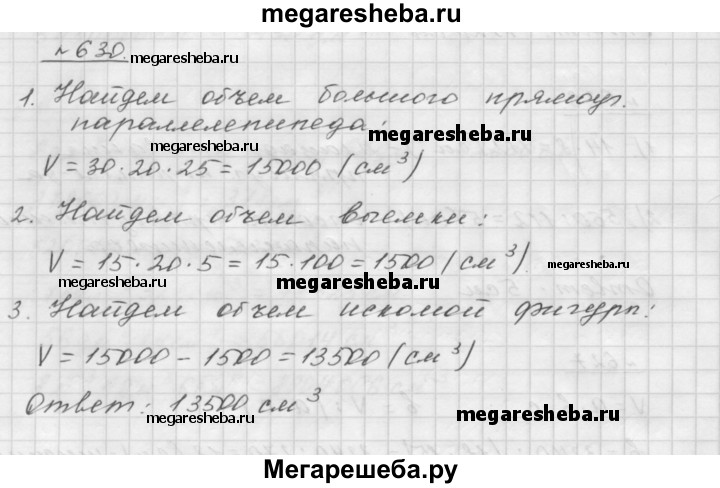 megaresheba.ru
№630. megaresheba.ru
1. Найдем объем большого прямоуг.
параллелепипеда:
megaresheba.ru megaresheba.ru
V = 30 · 20 · 25 = 15000 (см³)
2. Найдем объем выемки:
V = 15 · 20 · 5 = 15 · 100 = 1500 (см³) megaresheba.ru
megaresheba.ru megaresheba.ru
3. Найдем объем искомой фигуры:
V = 15000 - 1500 = 13500 (см³)
Ответ: 13500 см³
megaresheba.ru megaresheba.ru
Мегарешеба.ру